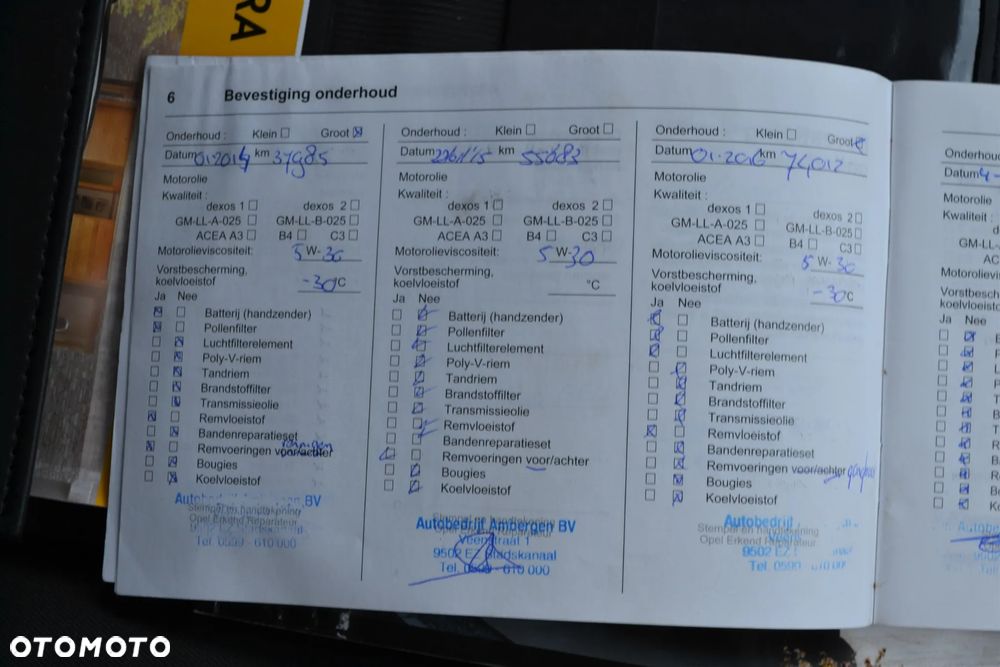 RA
6 Bevestiging onderhoud
Onderhoud : Klein Groot
Datum 01-2014 km 37985
Motorolie
Kwaliteit :
dexos 1 dexos 2
GM-LL-A-025 GM-LL-B-025
ACEA A3 B4 C3
Motorolieviscositeit: 5 W-30
Vorstbescherming,
koelvloeistof -30°C
Ja Nee
Batterij (handzender)
Pollenfilter
Luchtfilterelement
Poly-V-riem
Tandriem
Brandstoffilter
Transmissieolie
Remvloeistof
Bandenreparatieset
Remvoeringen voor/achter
Bougies
Koelvloeistof
Autobedrijf Ambergen BV
Stempel en handtekening
Opel Erkend Reparateur
Tel. 0599 - 610 000
Onderhoud : Klein Groot
Datum km 55683
Motorolie
Kwaliteit :
dexos 1 dexos 2
GM-LL-A-025 GM-LL-B-025
ACEA A3 B4 C3
Motorolieviscositeit: 5 W-30
Vorstbescherming,
koelvloeistof °C
Ja Nee
Batterij (handzender)
Pollenfilter
Luchtfilterelement
Poly-V-riem
Tandriem
Brandstoffilter
Transmissieolie
Remvloeistof
Bandenreparatieset
Remvoeringen voor/achter
Bougies
Koelvloeistof
Stempel en handtekening
Autobedrijf Ambergen BV
Opel Erkend Reparateur
Veenstraat 1
9502 EZ Stadskanaal
Tel. 0599 - 610 000
Onderhoud : Klein Groot
Datum 01-2016 km 74012
Motorolie
Kwaliteit :
dexos 1 dexos 2
GM-LL-A-025 GM-LL-B-025
ACEA A3 B4 C3
Motorolieviscositeit: 5 W-30
Vorstbescherming,
koelvloeistof -30°C
Ja Nee
Batterij (handzender)
Pollenfilter
Luchtfilterelement
Poly-V-riem
Tandriem
Brandstoffilter
Transmissieolie
Remvloeistof
Bandenreparatieset
Remvoeringen voor/achter
Bougies
Koelvloeistof
Autobedrijf
Stempel en handtekening
Opel Erkend Reparateur
9502 EZ
Tel. 0599
Onderhoud
Datum
Motorolie
Kwaliteit :
GM-LL
AC
Motorolievi
Vorstbesch
koelvloeist
Ja Nee
OTOMOTO